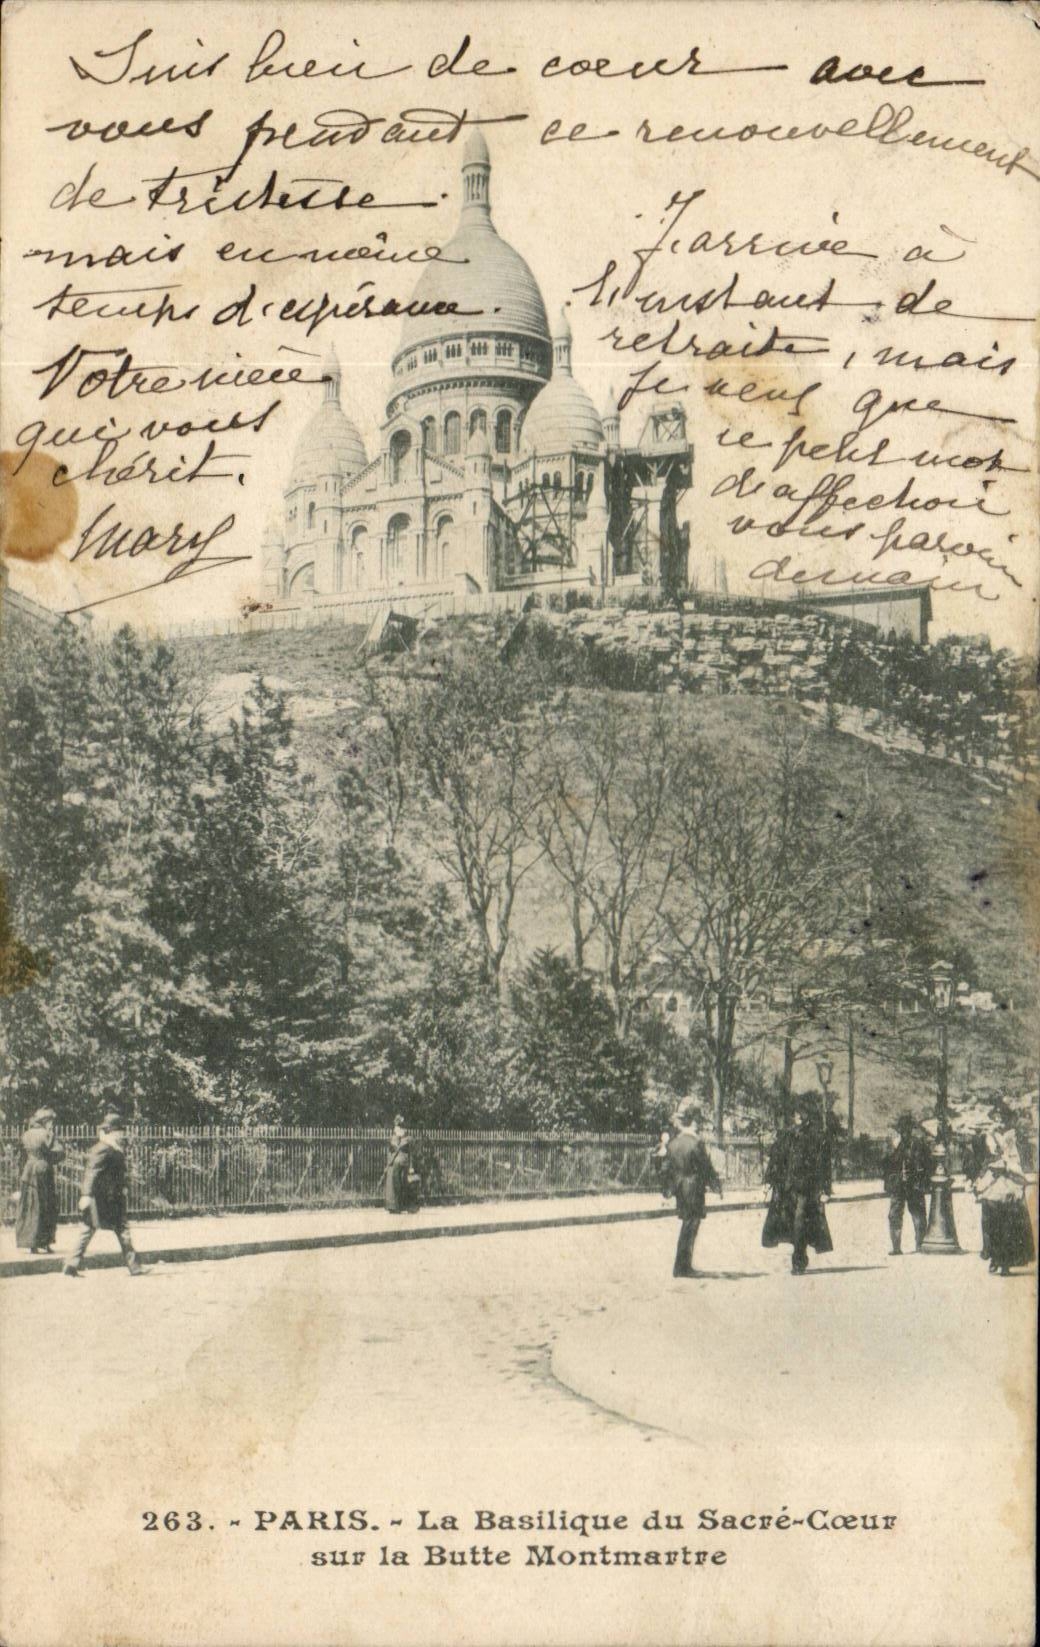 Suis bien de cœur avec
vous pendant ce renouvellement
de tristesse.
mais en même
temps d'espérance.
Votre nièce
qui vous
chérit.
Mary
J'arrive à
l'instant de
retraite, mais
je veux que
ce petit mot
d'affection
vous parvien
demain
263. - PARIS. - La Basilique du Sacré-Cœur
sur la Butte Montmartre